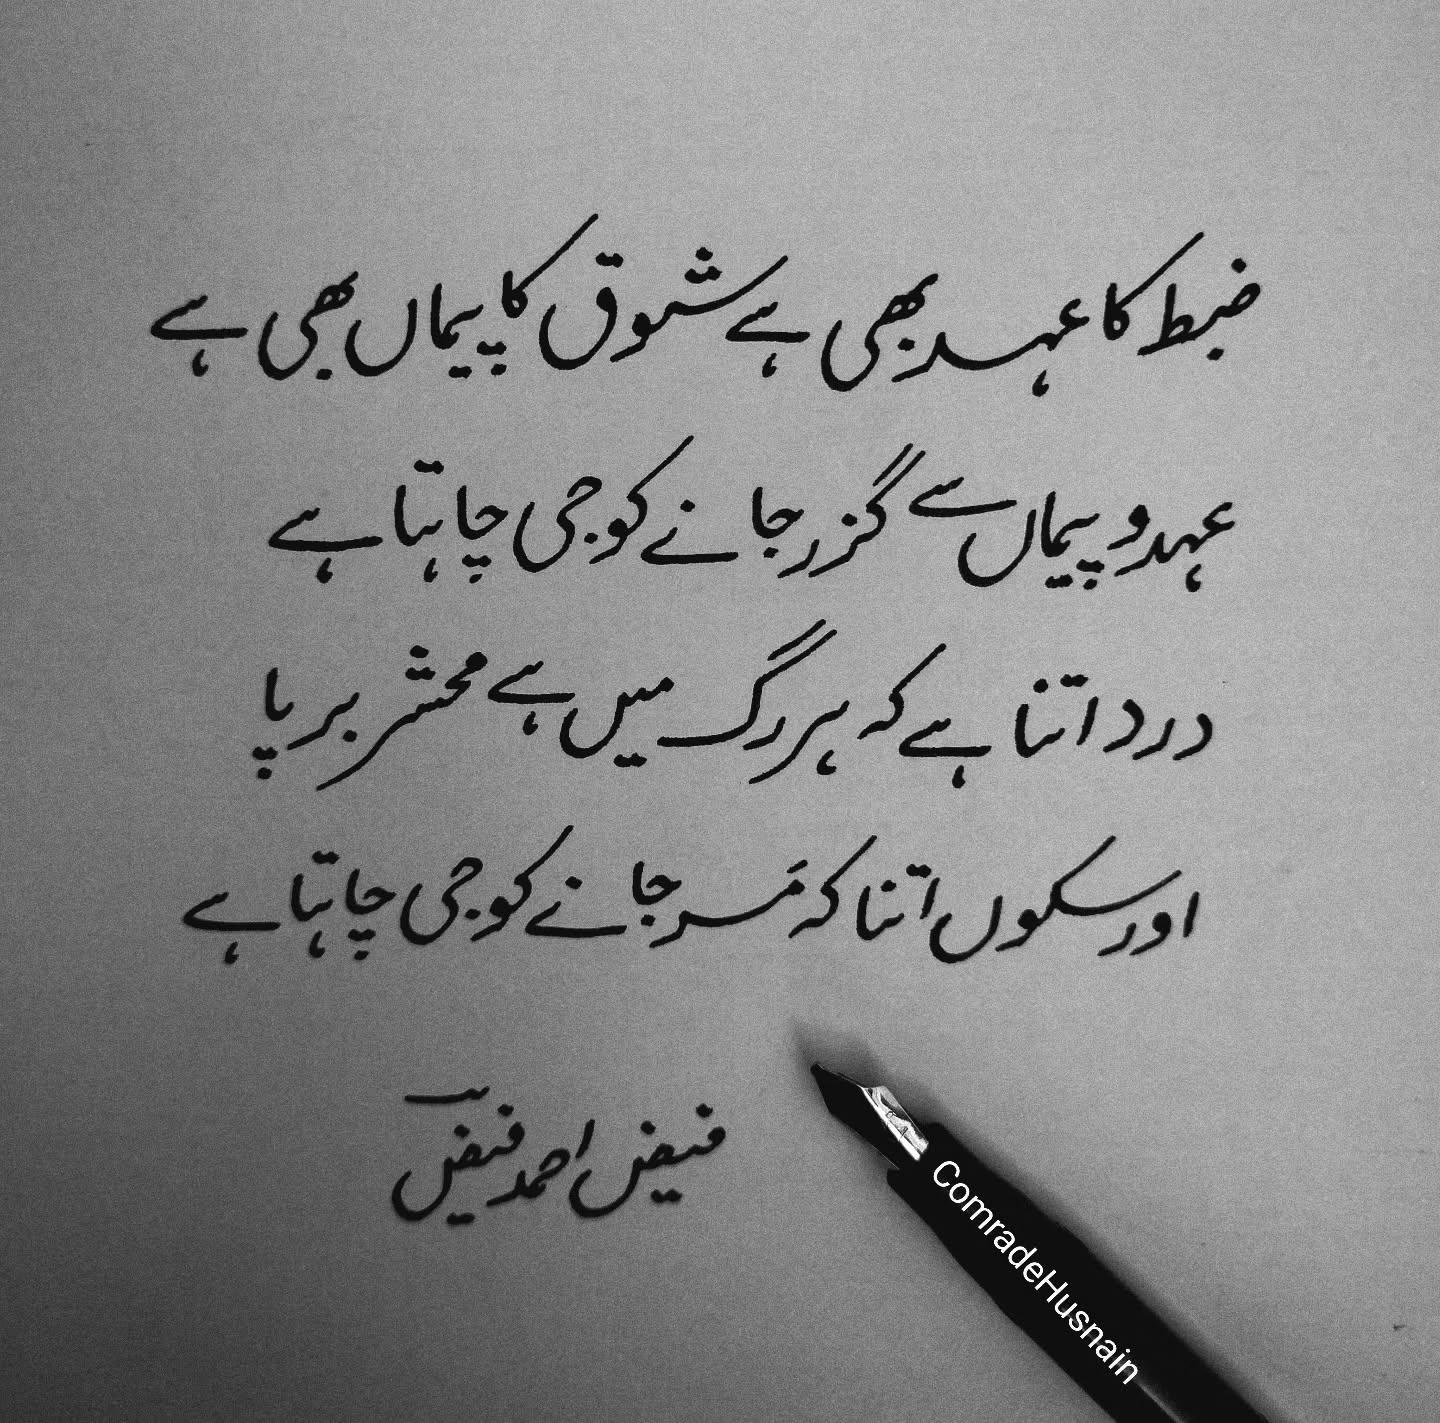 ضبط کا عہد بھی ہے شوق کا پیماں بھی ہے
عہد و پیماں سے گزر جانے کو جی چاہتا ہے
درد اتنا ہے کہ ہر رگ میں ہے محشر برپا
اور سکوں اتنا کہ مَر جانے کو جی چاہتا ہے
فیض احمد فیضؔ
ComradeHusnain